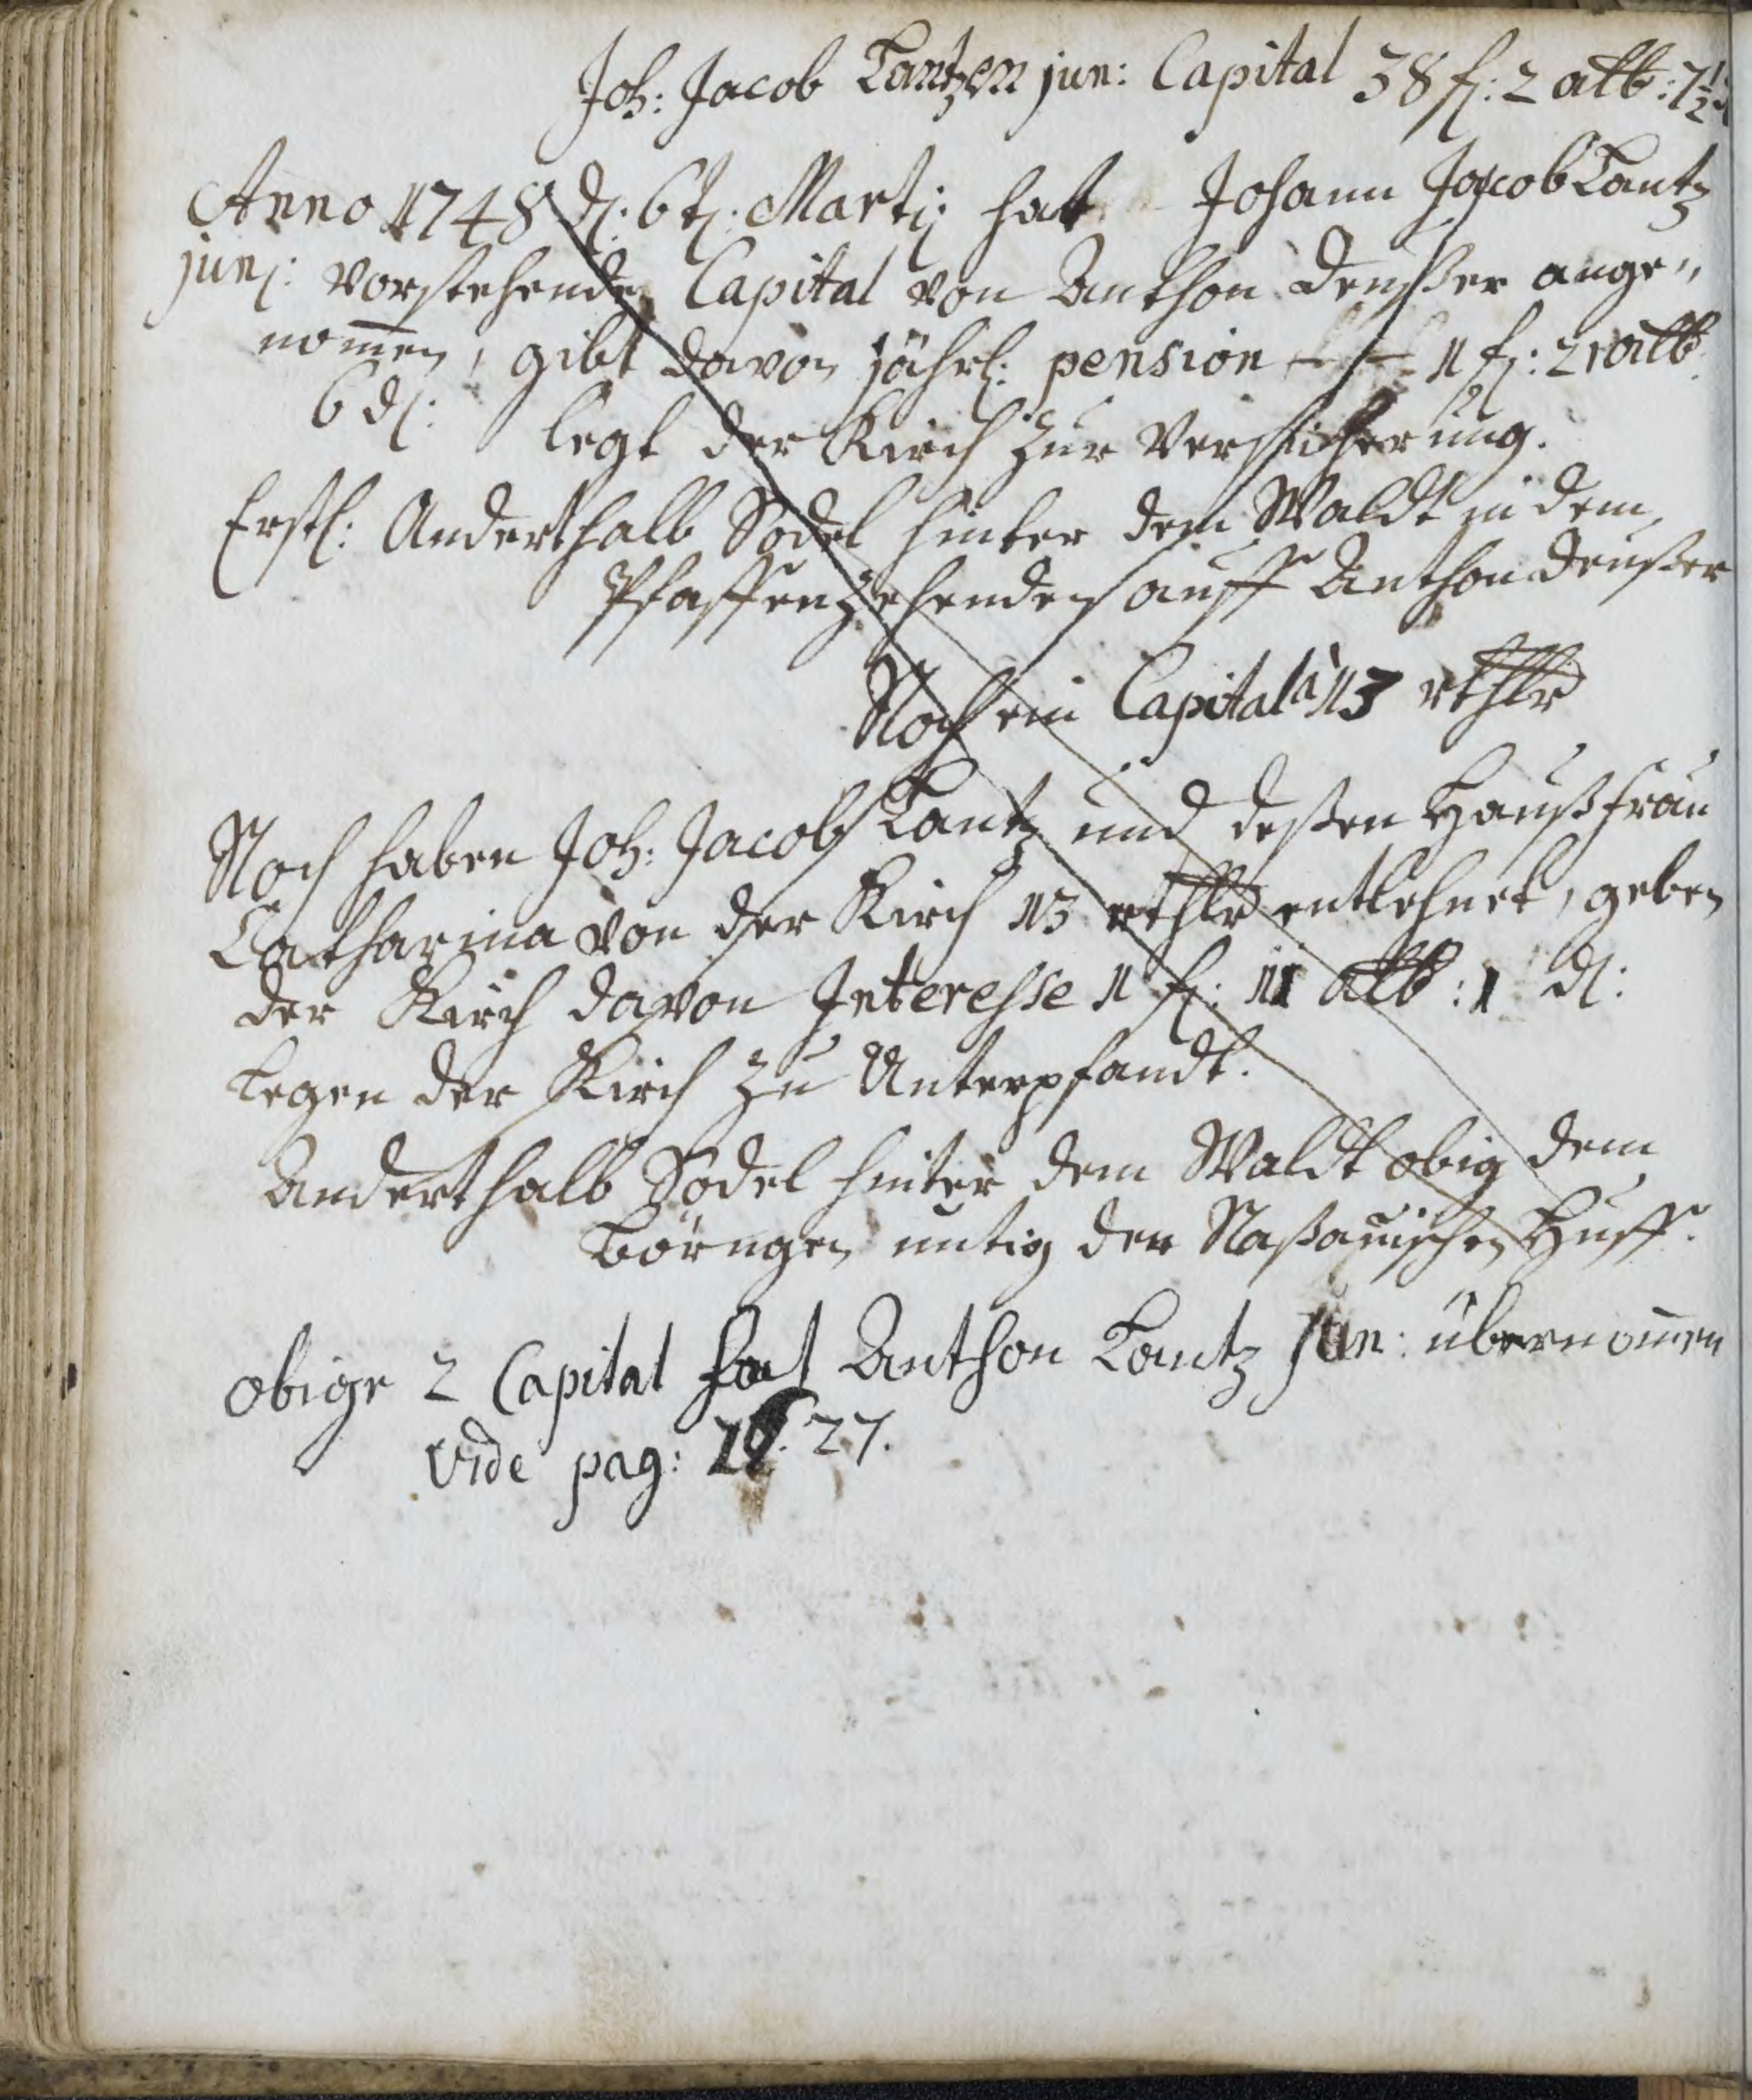 Joh: Jacob Lantzen jun: Capital 38 f: 2 alb: 7½
Anno 1748 d: 6t: Martij hat Johann Jacob Lantz
jun: vorstehende Capital von Anthon Deußer ange„
nom̄en, gibt davon jährl: pension - - 1 f: 21 alb
6 d: legt der Kirch zur Versicherung.
Erstl: Anderthalb Sodel hinter dem Waldt in dem
Pfaffenzehenden auff Anthon Deußer
Noch ein Capital à 13 rthlr
Noch haben Joh: Jacob Lantz und deßen Haußfrau
Catharina von der Kirch 13 rthlr entlehnet, geben
der Kirch davon Interesse 1 f: 11 alb: 1 d:
Legen der Kirch zu Unterpfandt.
Anderthalb Sodel hinter dem Waldt obig dem
Börngen untig der Naßauischen Huff.
obige 2 Capital hat Anthon Lantz jun: übernom̄en
vide pag: 27.